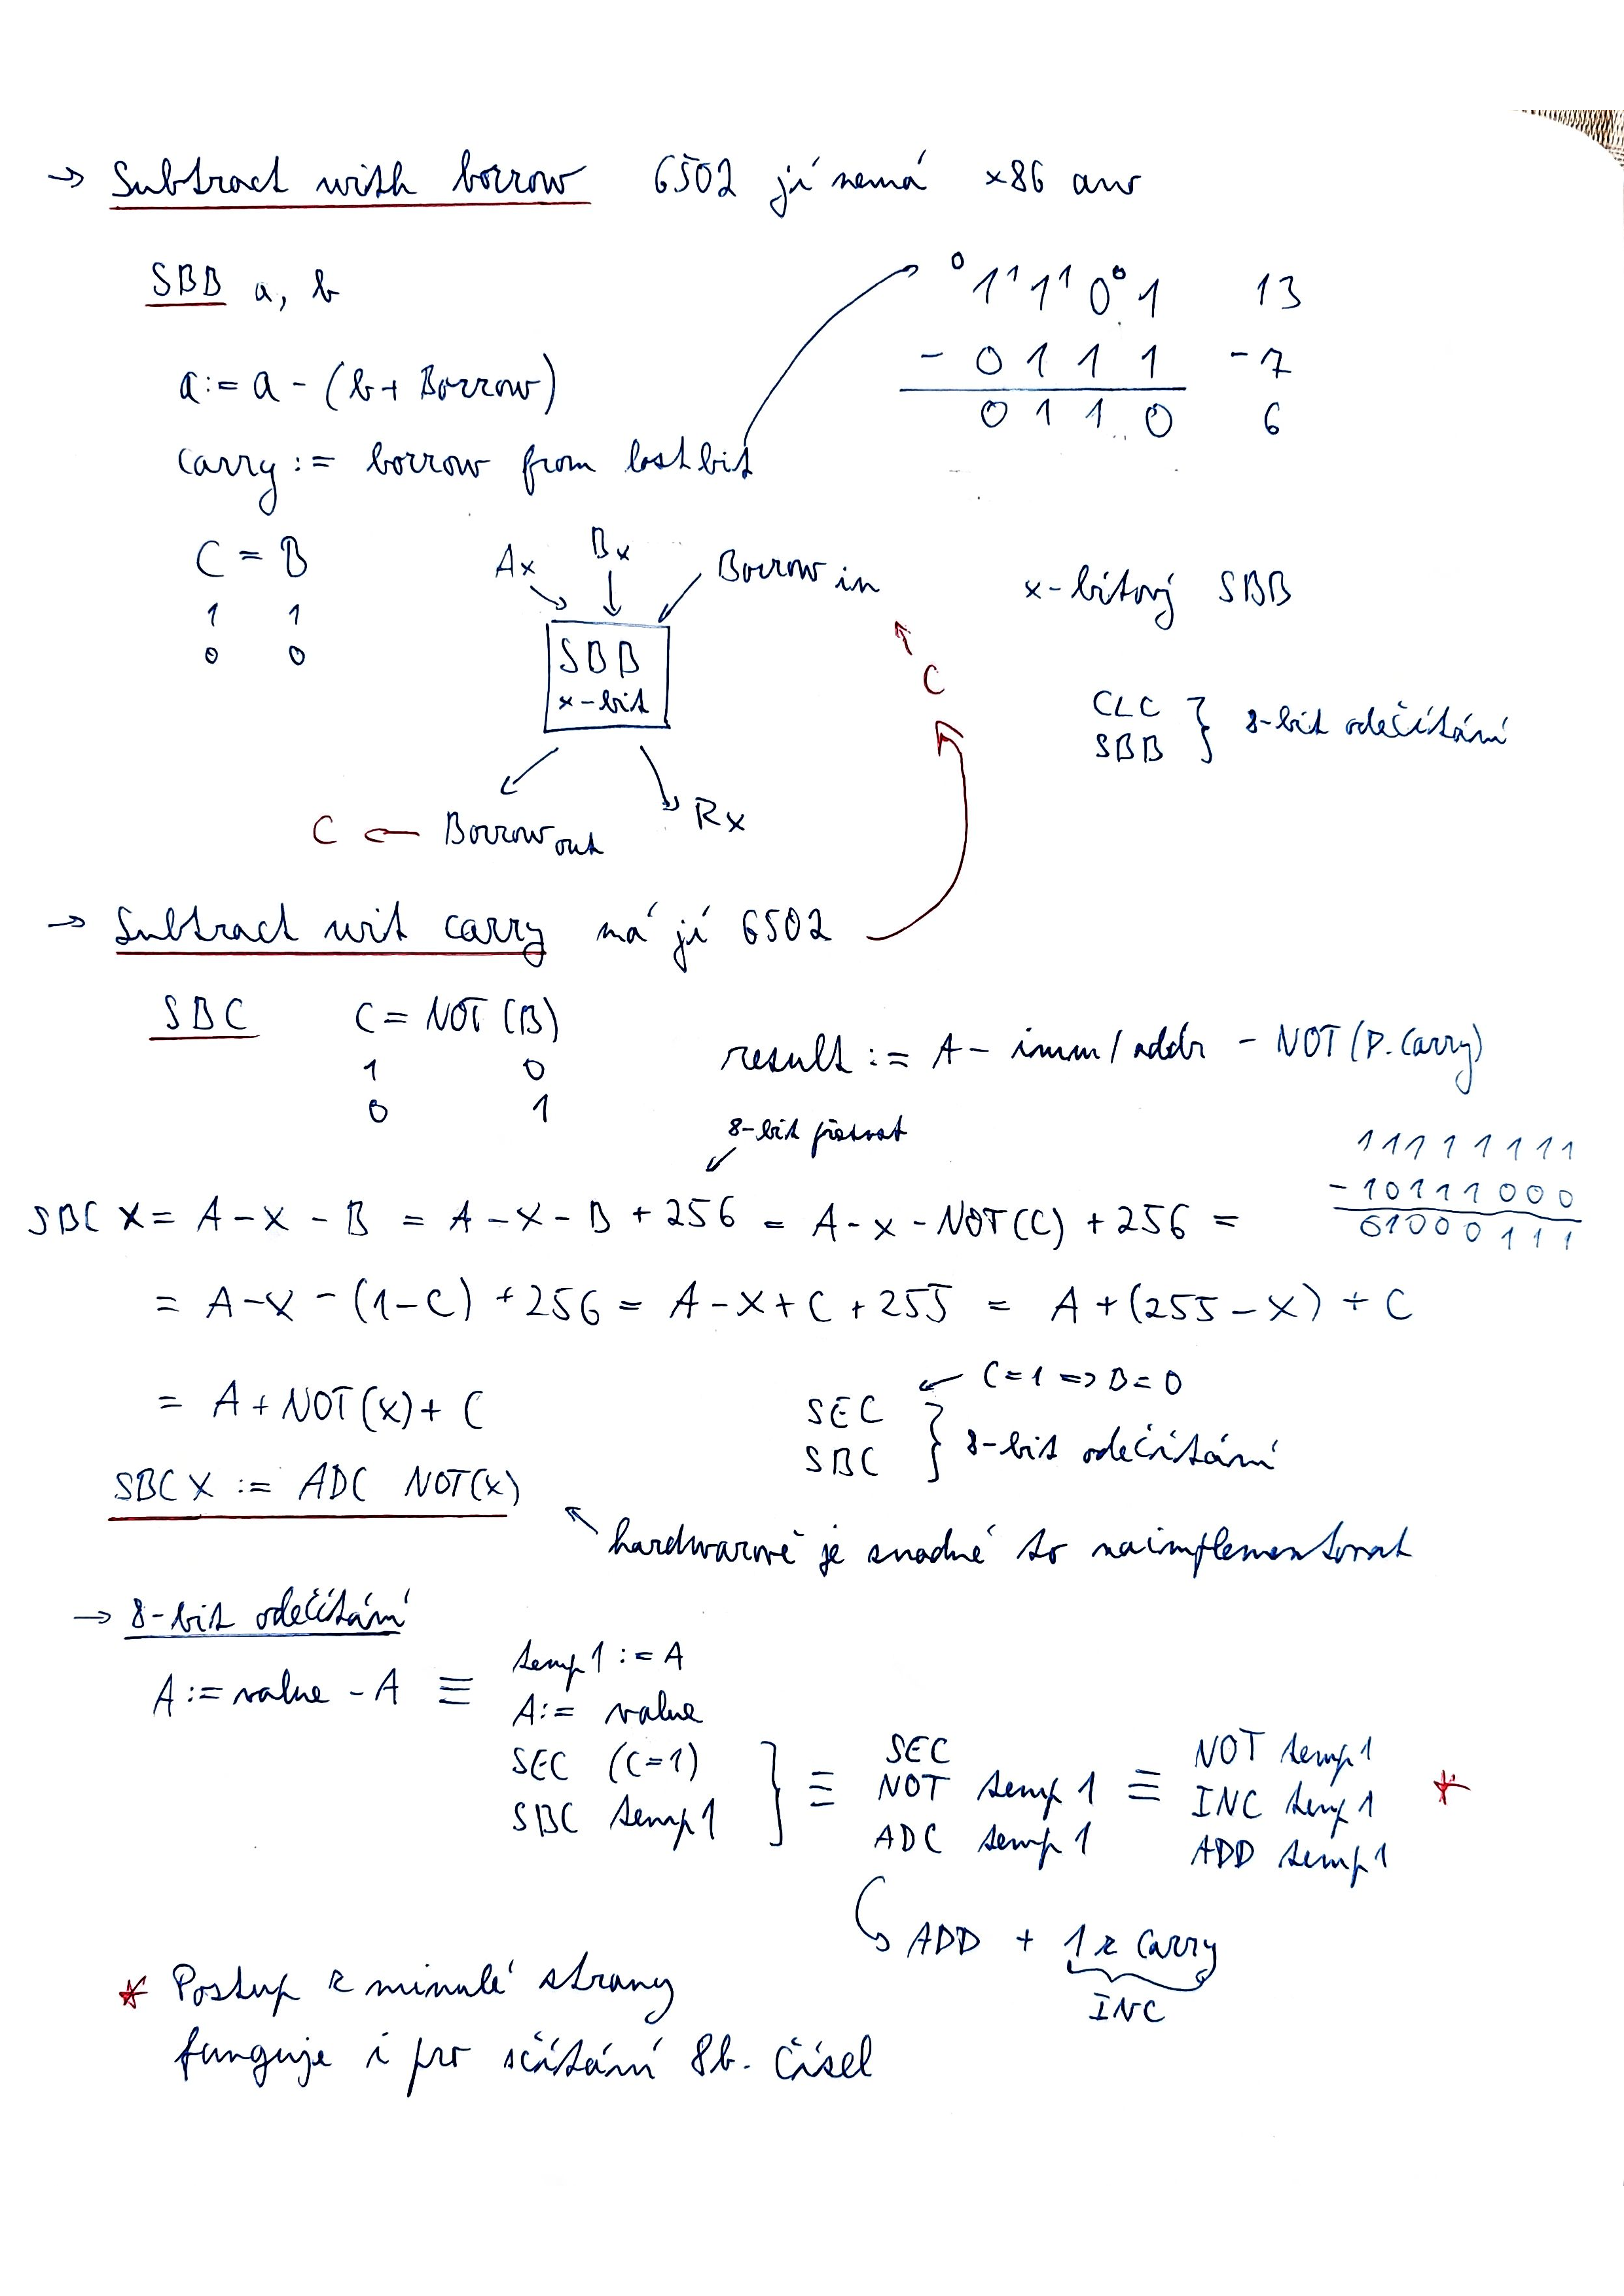 → Subtract with borrow 6502 jí nemá x86 ano
SBB a, b
a := a - (b + Borrow)
carry := borrow from last bit
0 1 1 1 1 0 0 1 13
- 0 1 1 1 - 7
0 1 1 0 6
C = B
1 1
0 0
Ax Bx Borrow in
SBB
x-bit
C ← Borrow out
Rx
C
x-bitový SBB
CLC
SBB } 8-bit odečítání
→ Subtract wit carry má jí 6502
SBC C = NOT (B)
1 0
0 1
result := A - imm/addr - NOT (P.Carry)
8-bit přetrat
11111111
- 10111000
01000111
SBC X = A - X - B = A - X - B + 256 = A - X - NOT(C) + 256 =
= A - X - (1 - C) + 256 = A - X + C + 255 = A + (255 - X) + C
= A + NOT(X) + C
← C=1 => B=0
SEC
SBC } 8-bit odečítání
SBC X := ADC NOT(X)
hardwarově je snadné to naimplementovat
→ 8-bit odečítání
A := value - A ≡
temp1 := A
A := value
SEC (C=1)
SBC temp1
} ≡
SEC
NOT temp1
ADC temp1
≡
NOT temp1
INC temp1
ADD temp1
*
ADD + 1 z Carry
INC
* Postup z minulé strany
funguje i pro sčítání 8b. čísel